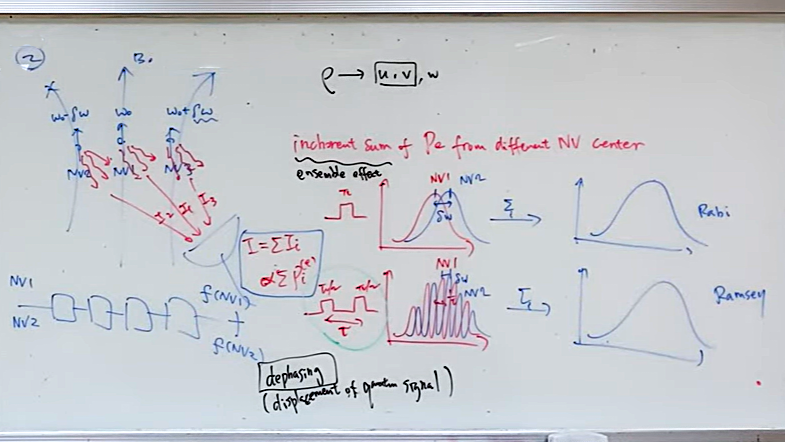 ②
B₀
ρ → u, v, w
ω₀-δω
ω₀
ω₀+δω
NV2
NV1
NV3
incoherent sum of Pe from different NV center
ensemble effect
I2
I1
I3
π
NV1
NV2
δω
Σi
Rabi
I = ΣIi
∝ΣPi(e)
NV1
NV2
f(NV1)
+
f(NV2)
π/2
π/2
τ
NV1
δω
NV2
Σi
Ramsey
dephasing
(displacement of quantum signal)